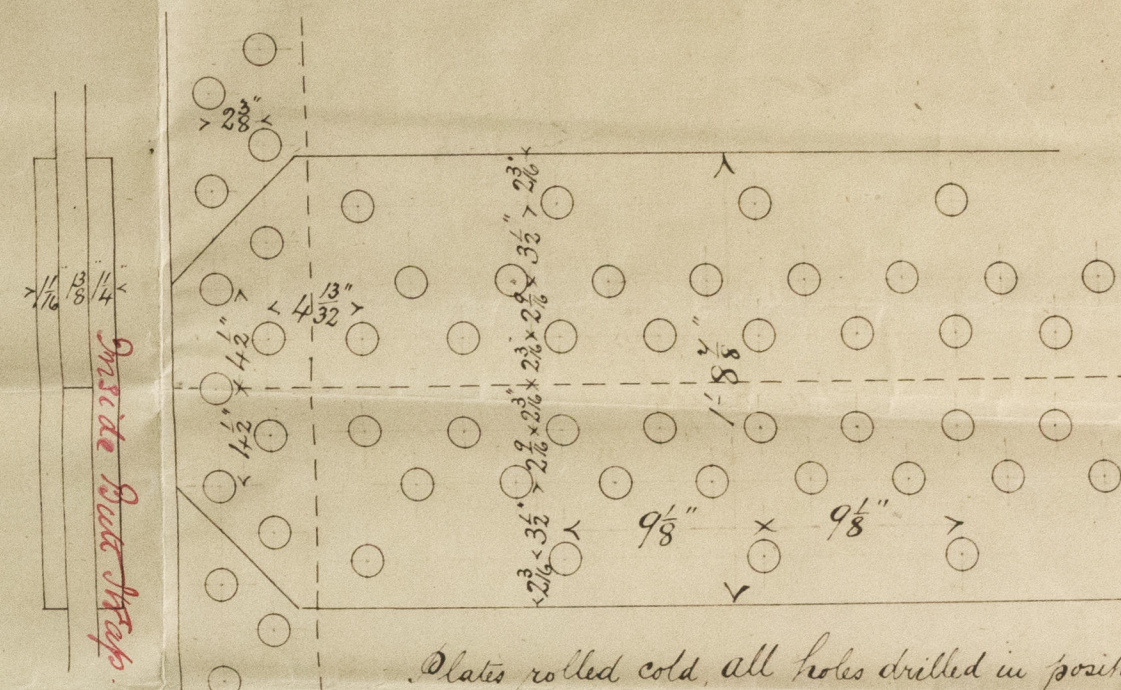 2 3/8"
1 1/16 1 3/8 1 1/4
Inside Butt Strap.
4 13/32"
4 1/2" x 4 1/2"
2 3/16" < 3 1/2" > 2 9/16 x 2 3/16" x 2 3/16" x 2 9/16" x 3 1/2" > 2 3/16"
1' 8 7/8"
9 1/8" x 9 1/8"
Plates rolled cold, all holes drilled in posit